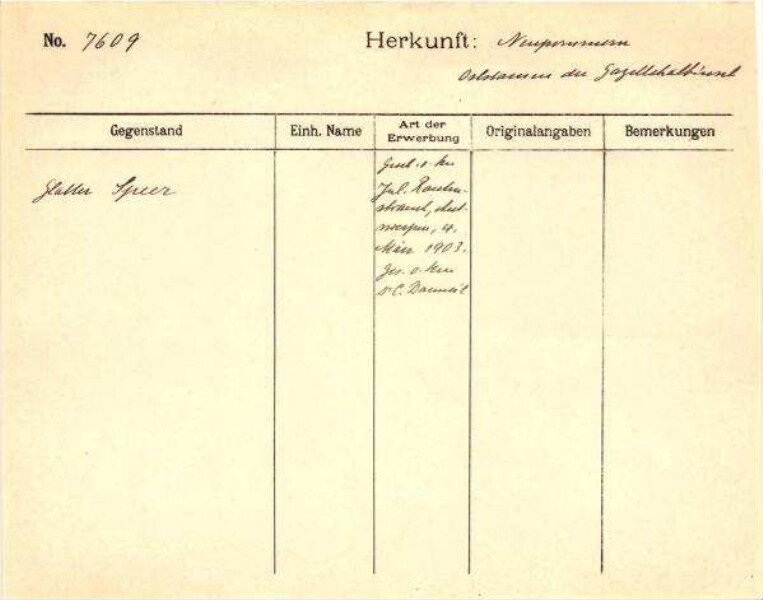 No. 7609 Herkunft: Neupommern
der Gazellehalbinsel
Gegenstand Einh. Name Art der Erwerbung Originalangaben Bemerkungen
Glatter Speer
Gesch. v. Hrn
Jul.
werpen, 4.
März 1903.
Ges. v. Hrn
Dr C.